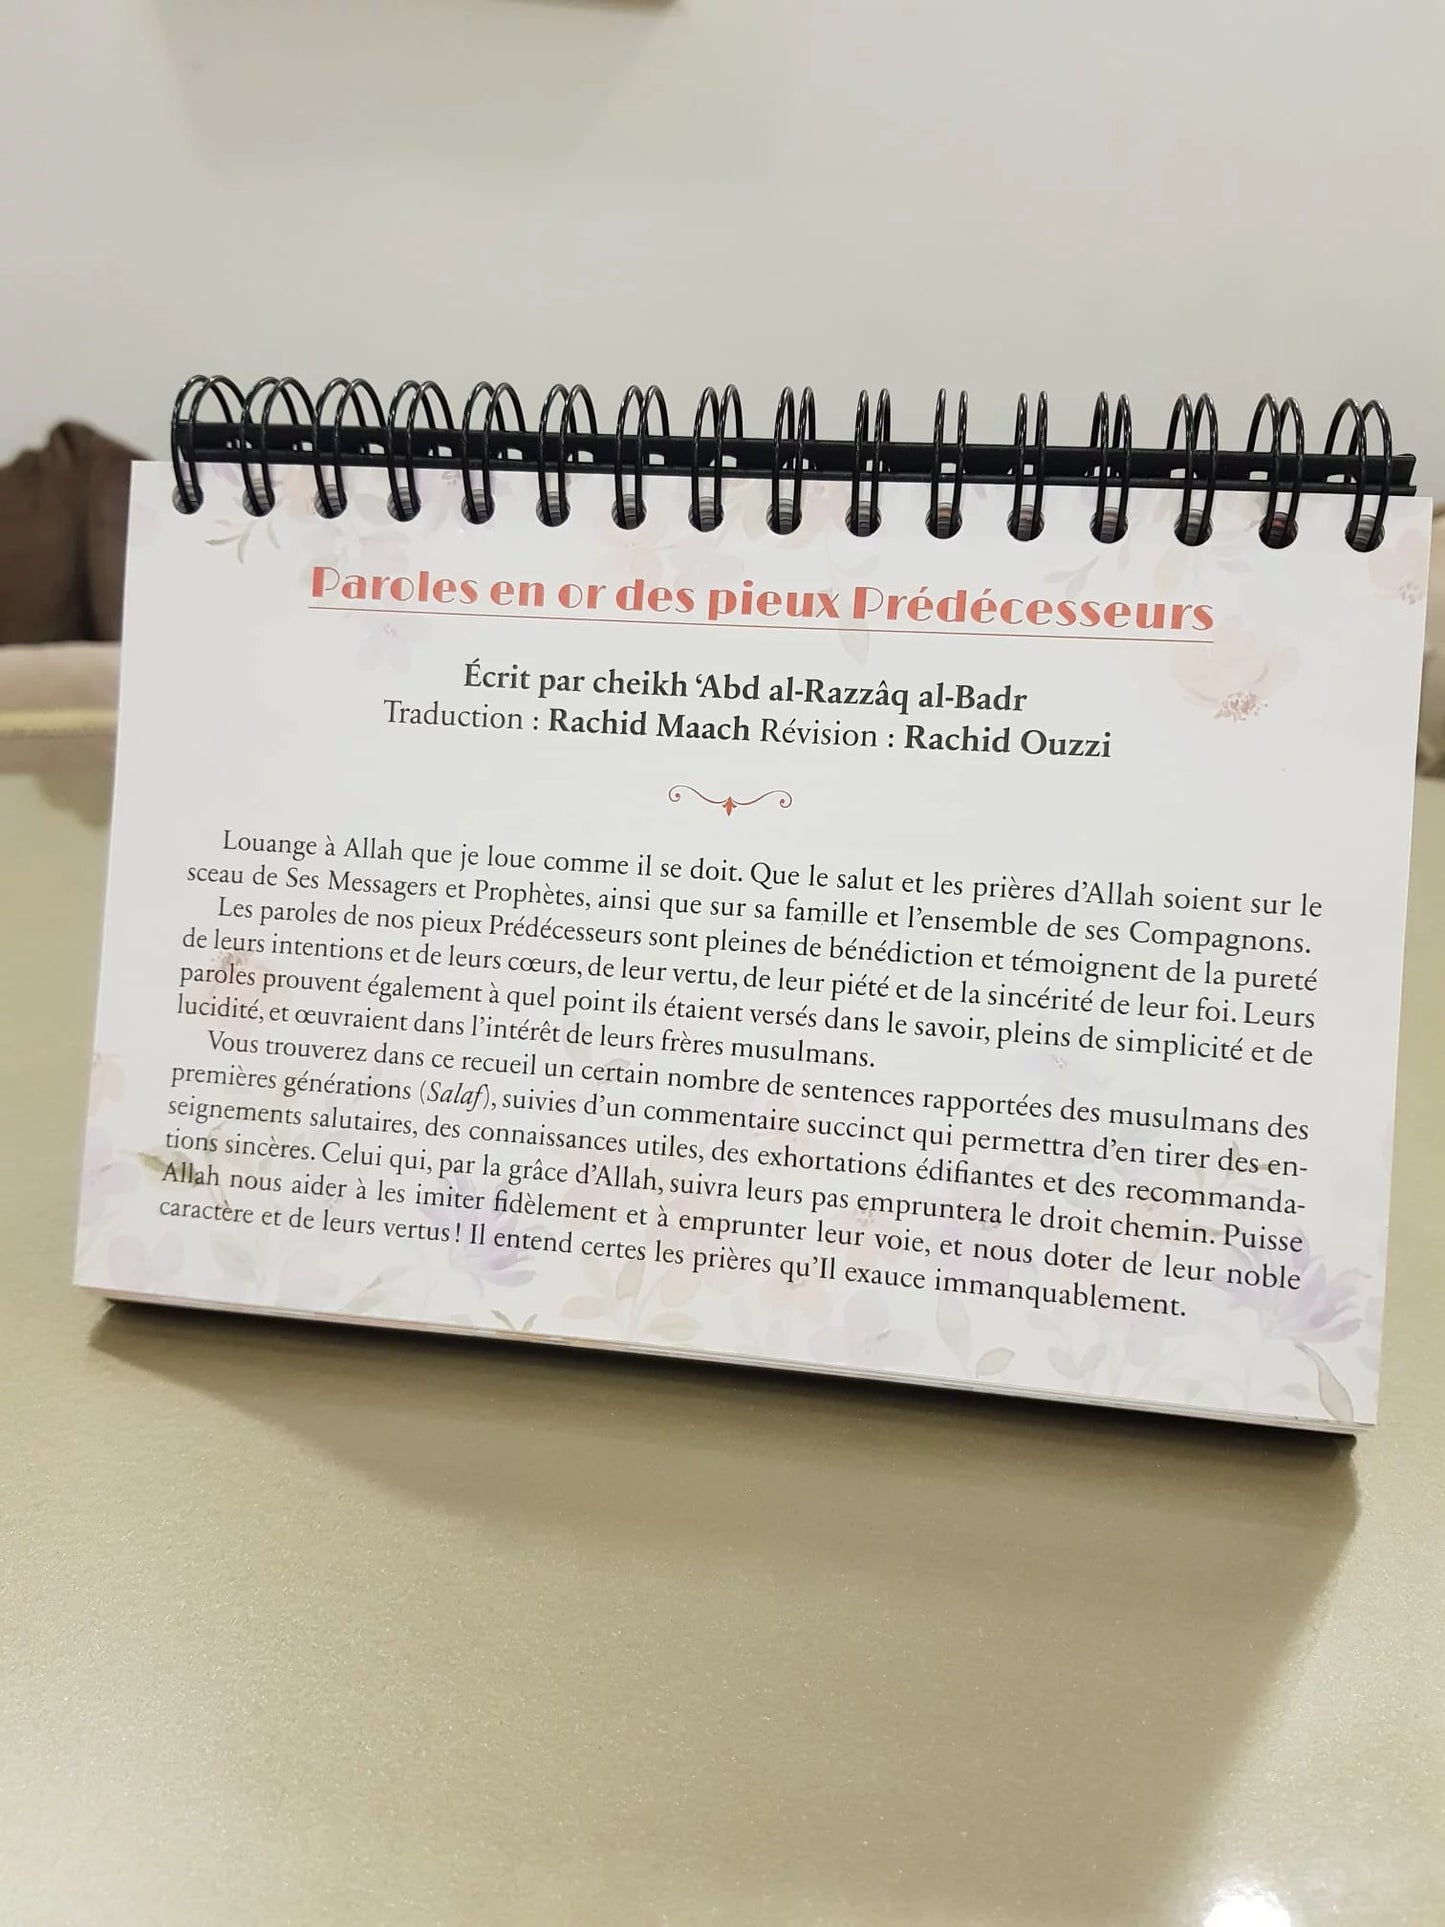 Paroles en or des pieux Prédécesseurs
Écrit par cheikh ‘Abd al-Razzâq al-Badr
Traduction : Rachid Maach Révision : Rachid Ouzzi
Louange à Allah que je loue comme il se doit. Que le salut et les prières d’Allah soient sur le
sceau de Ses Messagers et Prophètes, ainsi que sur sa famille et l’ensemble de ses Compagnons.
Les paroles de nos pieux Prédécesseurs sont pleines de bénédiction et témoignent de la pureté
de leurs intentions et de leurs cœurs, de leur vertu, de leur piété et de la sincérité de leur foi. Leurs
paroles prouvent également à quel point ils étaient versés dans le savoir, pleins de simplicité et de
lucidité, et œuvraient dans l’intérêt de leurs frères musulmans.
Vous trouverez dans ce recueil un certain nombre de sentences rapportées des musulmans des
premières générations (Salaf), suivies d’un commentaire succinct qui permettra d’en tirer des en-
seignements salutaires, des connaissances utiles, des exhortations édifiantes et des recommanda-
tions sincères. Celui qui, par la grâce d’Allah, suivra leurs pas empruntera le droit chemin. Puisse
Allah nous aider à les imiter fidèlement et à emprunter leur voie, et nous doter de leur noble
caractère et de leurs vertus ! Il entend certes les prières qu’Il exauce immanquablement.